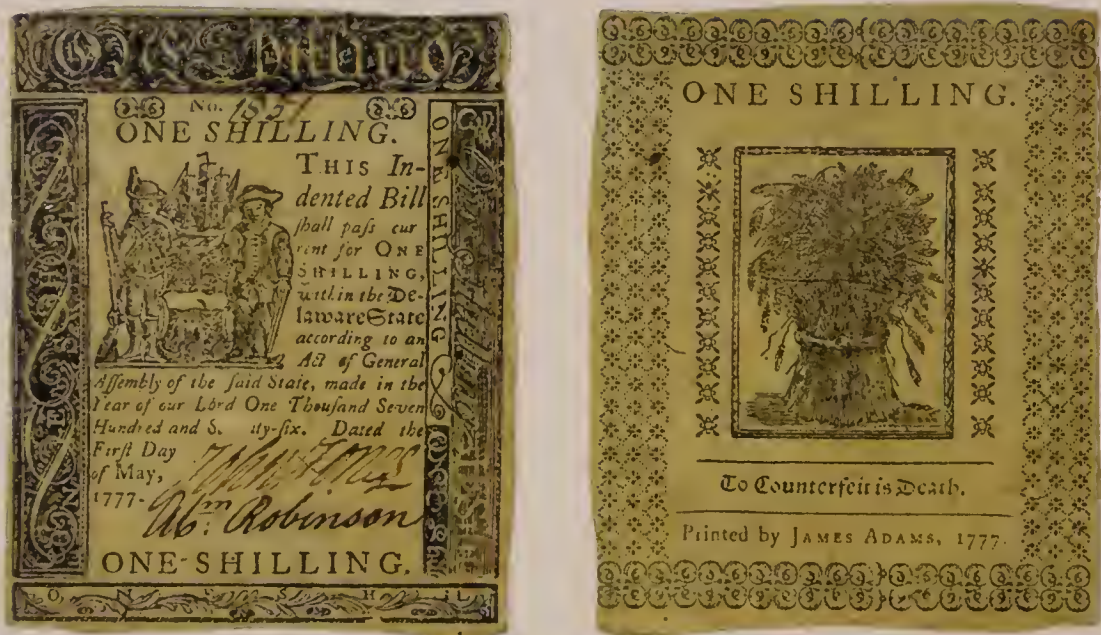 One Shilling
No. 1837
ONE SHILLING.
THIS In-
dented Bill
ſhall paſs cur
rent for ONE
SHILLING,
within the De-
laware State
according to an
Act of General
Aſſembly of the ſaid State, made in the
Year of our Lord One Thouſand Seven
Hundred and S ty-ſix. Dated the
Firſt Day
of May,
1777.
John Jones
Abm. Robinson
ONE-SHILLING.
ONE SHILLING
ONE SHILLING.
To Counterfeit is Death.
Printed by JAMES ADAMS, 1777.